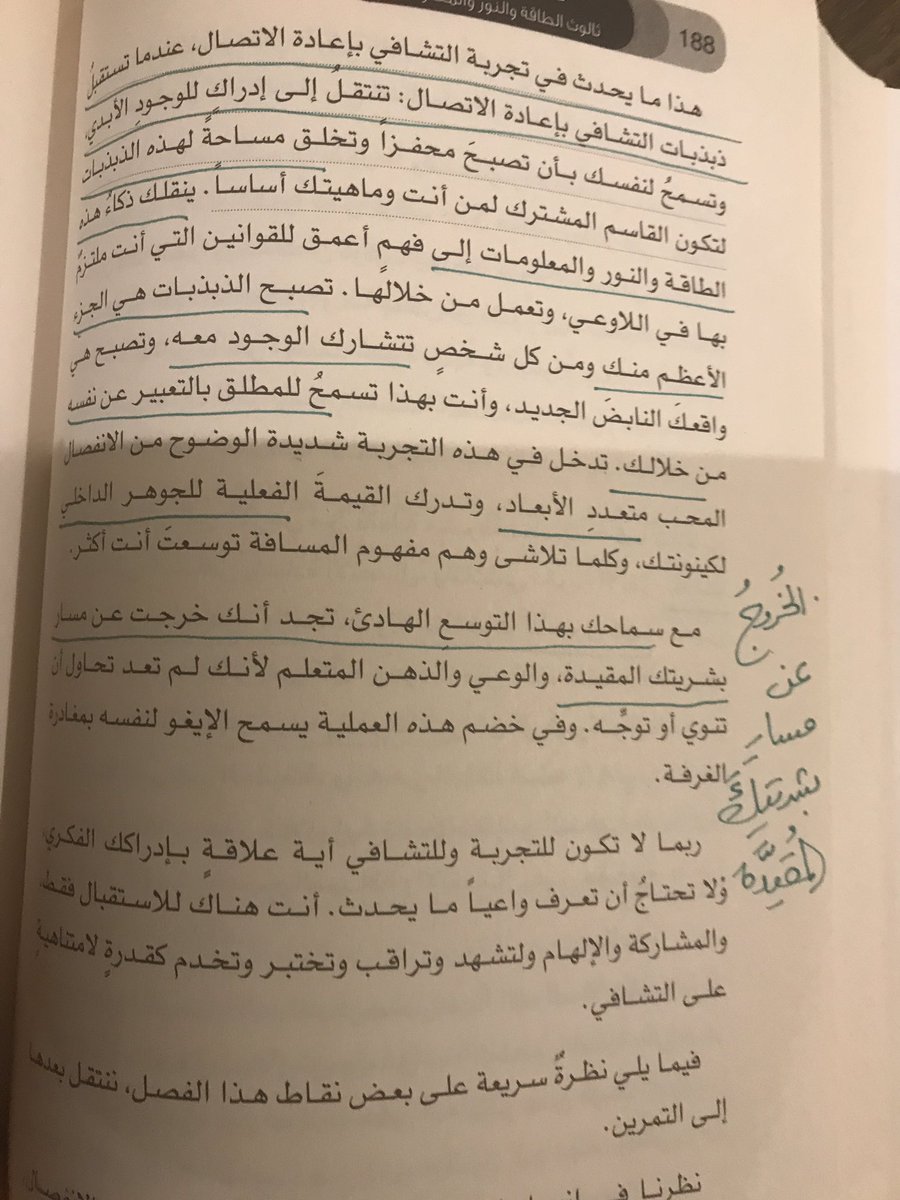 188
ثالوث الطاقة والنور
هذا ما يحدث في تجربة التشافي بإعادة الاتصال، عندما تستقبلُ
ذبذبات التشافي بإعادة الاتصال: تنتقلُ إلى إدراكِ للوجودِ الأبدي،
وتسمحُ لنفسك بأن تصبحَ محفزاً وتخلق مساحةً لهذه الذبذبات
لتكون القاسم المشترك لمن أنت وماهيتك أساساً. ينقلك ذكاءُ هذه
الطاقة والنور والمعلومات إلى فهمٍ أعمق للقوانين التي أنت ملتزمٌ
بها في اللاوعي، وتعمل من خلالها. تصبح الذبذبات هي الجزء
الأعظم منك ومن كل شخصٍ تتشارك الوجود معه، وتصبح هي
واقعكَ النابضَ الجديد، وأنت بهذا تسمحُ للمطلق بالتعبير عن نفسه
من خلالك. تدخل في هذه التجربة شديدة الوضوح من الانفصال
المحب متعددِ الأبعاد، وتدرك القيمةَ الفعلية للجوهر الداخلي
لكينونتك، وكلما تلاشى وهم مفهوم المسافة توسعتَ أنت أكثر.
مع سماحك بهذا التوسعِ الهادئ، تجد أنك خرجت عن مسار
بشريتك المقيدة، والوعي والذهن المتعلم لأنك لم تعد تحاول أن
تنوي أو توجِّه. وفي خضم هذه العملية يسمح الإيغو لنفسه بمغادرة
الغرفة.
الخُروجُ
عن
مسارِ
بشريتِكَ
المُقيدَّة
ربما لا تكون للتجربة وللتشافي أية علاقةٍ بإدراكك الفكري،
ولا تحتاجُ أن تعرف واعياً ما يحدث. أنت هناك للاستقبال فقط،
والمشاركة والإلهام ولتشهد وتراقب وتختبر وتخدم كقدرةٍ لامتناهيةٍ
على التشافي.
فيما يلي نظرةٌ سريعة على بعض نقاط هذا الفصل، ننتقل بعدها
إلى التمرين.
نظرنا في